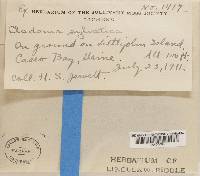 Ex HERBARIUM OF THE SULLIVANT MOSS SOCIETY
No. 1417
LICHENS
Cladonia sylvatica
On ground on Littlejohn Island,
Casco Bay, Maine. Alt. 100 ft.
July 23, 1911.
Coll. H. S. Jewett.
HERBARIUM OF
LINCOLN W. RIDDLE